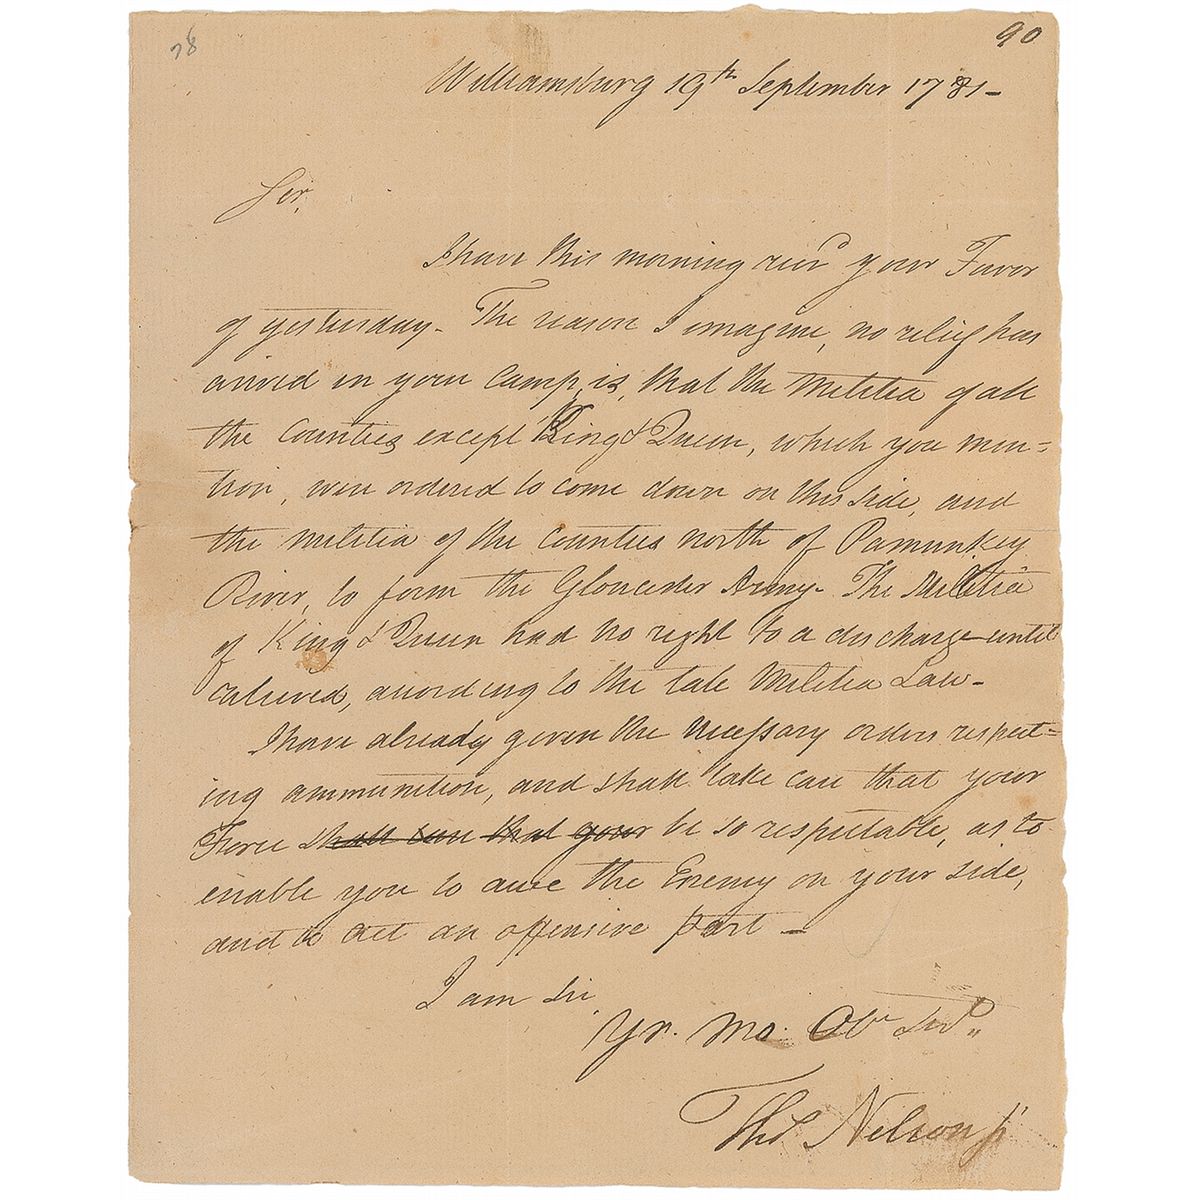 78
90
Williamsburg 19th September 1781-
Sir,
I have this morning recd your Favor
of yesterday. The reason I imagine, no relief has
arrived in your Camp, is, that the Militia of all
the Counties except King & Queen, which you men=
tion, were ordered to come down on this side, and
the militia of the Counties north of Pamunkey
River, to form the Gloucester Army. The Militia
of King & Queen had no right to a discharge until
relieved, according to the late Militia Law-
I have already given the necessary orders respect=
ing ammunition, and shall take care that your
Force shall care that your be so respectable, as to
enable you to awe the Enemy on your side,
and to act an offensive part -
I am Sir
Yr. Mo. Obt Servt
Thos Nelson jr